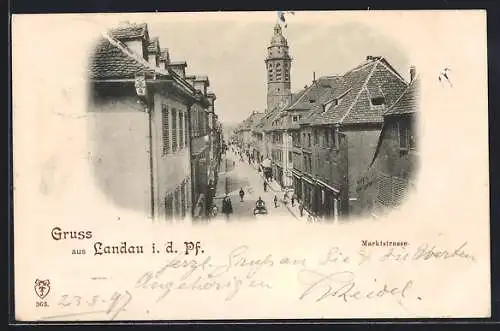 Gruss
aus Landau i. d. Pf.
Marktstrasse.
Herzl. Gruß an Sie & die werten
Angehörigen
363.
23-8-97